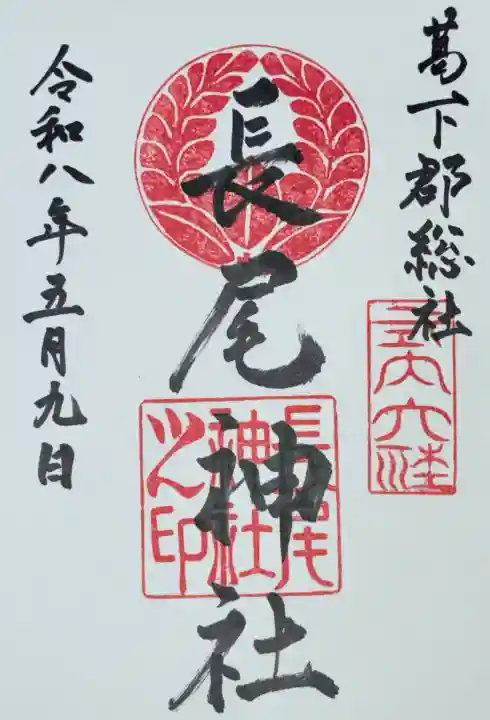 葛下郡総社
式内大社
長尾神社
長尾
神社
之印
令和八年五月九日